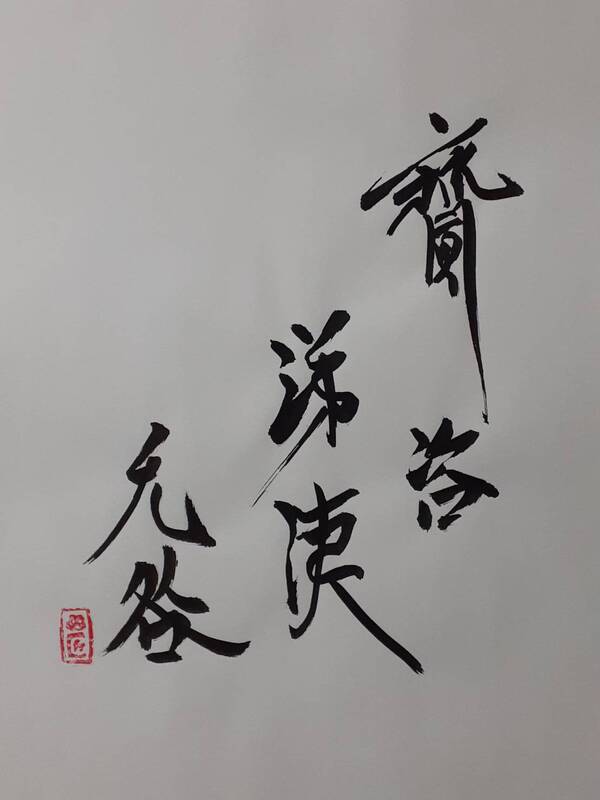 齎咨
涕洟
无咎